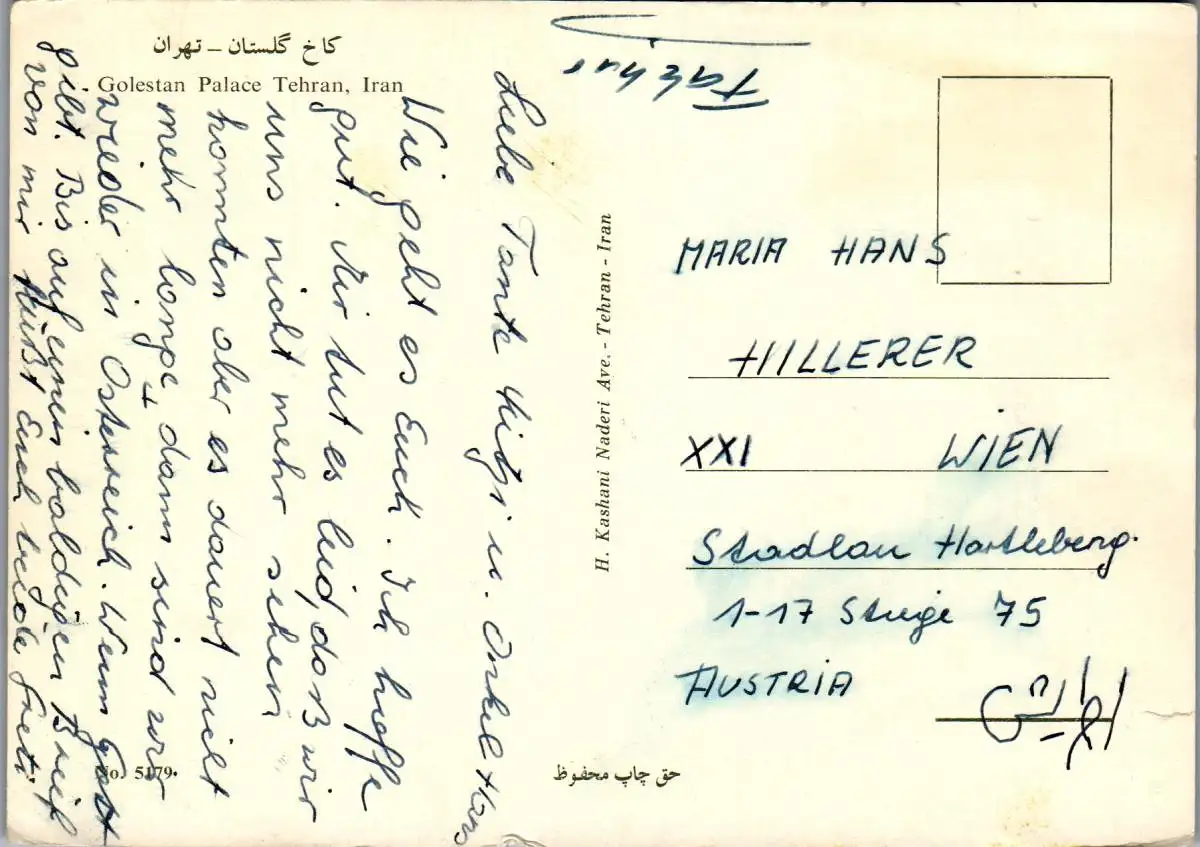 کاخ گلستان – تهران
Golestan Palace Tehran, Iran
Liebe Tante Mitzi u. Onkel Hans
Wie geht es Euch. Ich hoffe
gut. Mir tut es leid, daß wir
uns nicht mehr sehen
konnten aber es dauert nicht
mehr lange dann sind wir
wieder in Österreich. Wenn Gott
gibt. Bis auf einen baldigen Brief
von mir küßt Euch beide Greti.
H. Kashani Naderi Ave. - Tehran - Iran
MARIA HANS
HILLERER
XXI WIEN
Stadlau Hartleberg.
1-17 Stiege 75
AUSTRIA
اتریش
no. 5179.
حق چاپ محفوظ